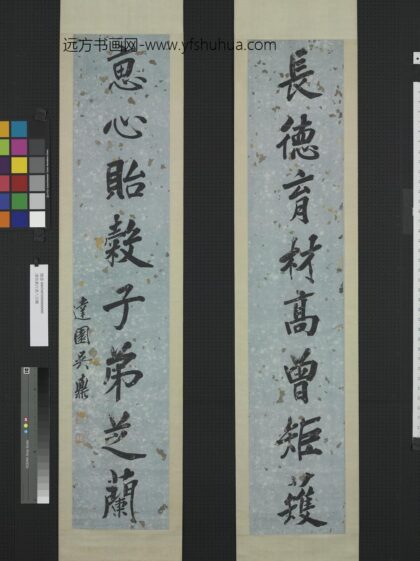 远方书画网-www.yfshuhua.com
長德育材高曾矩矱
惠心貽穀子弟芝蘭
達園吳鼒